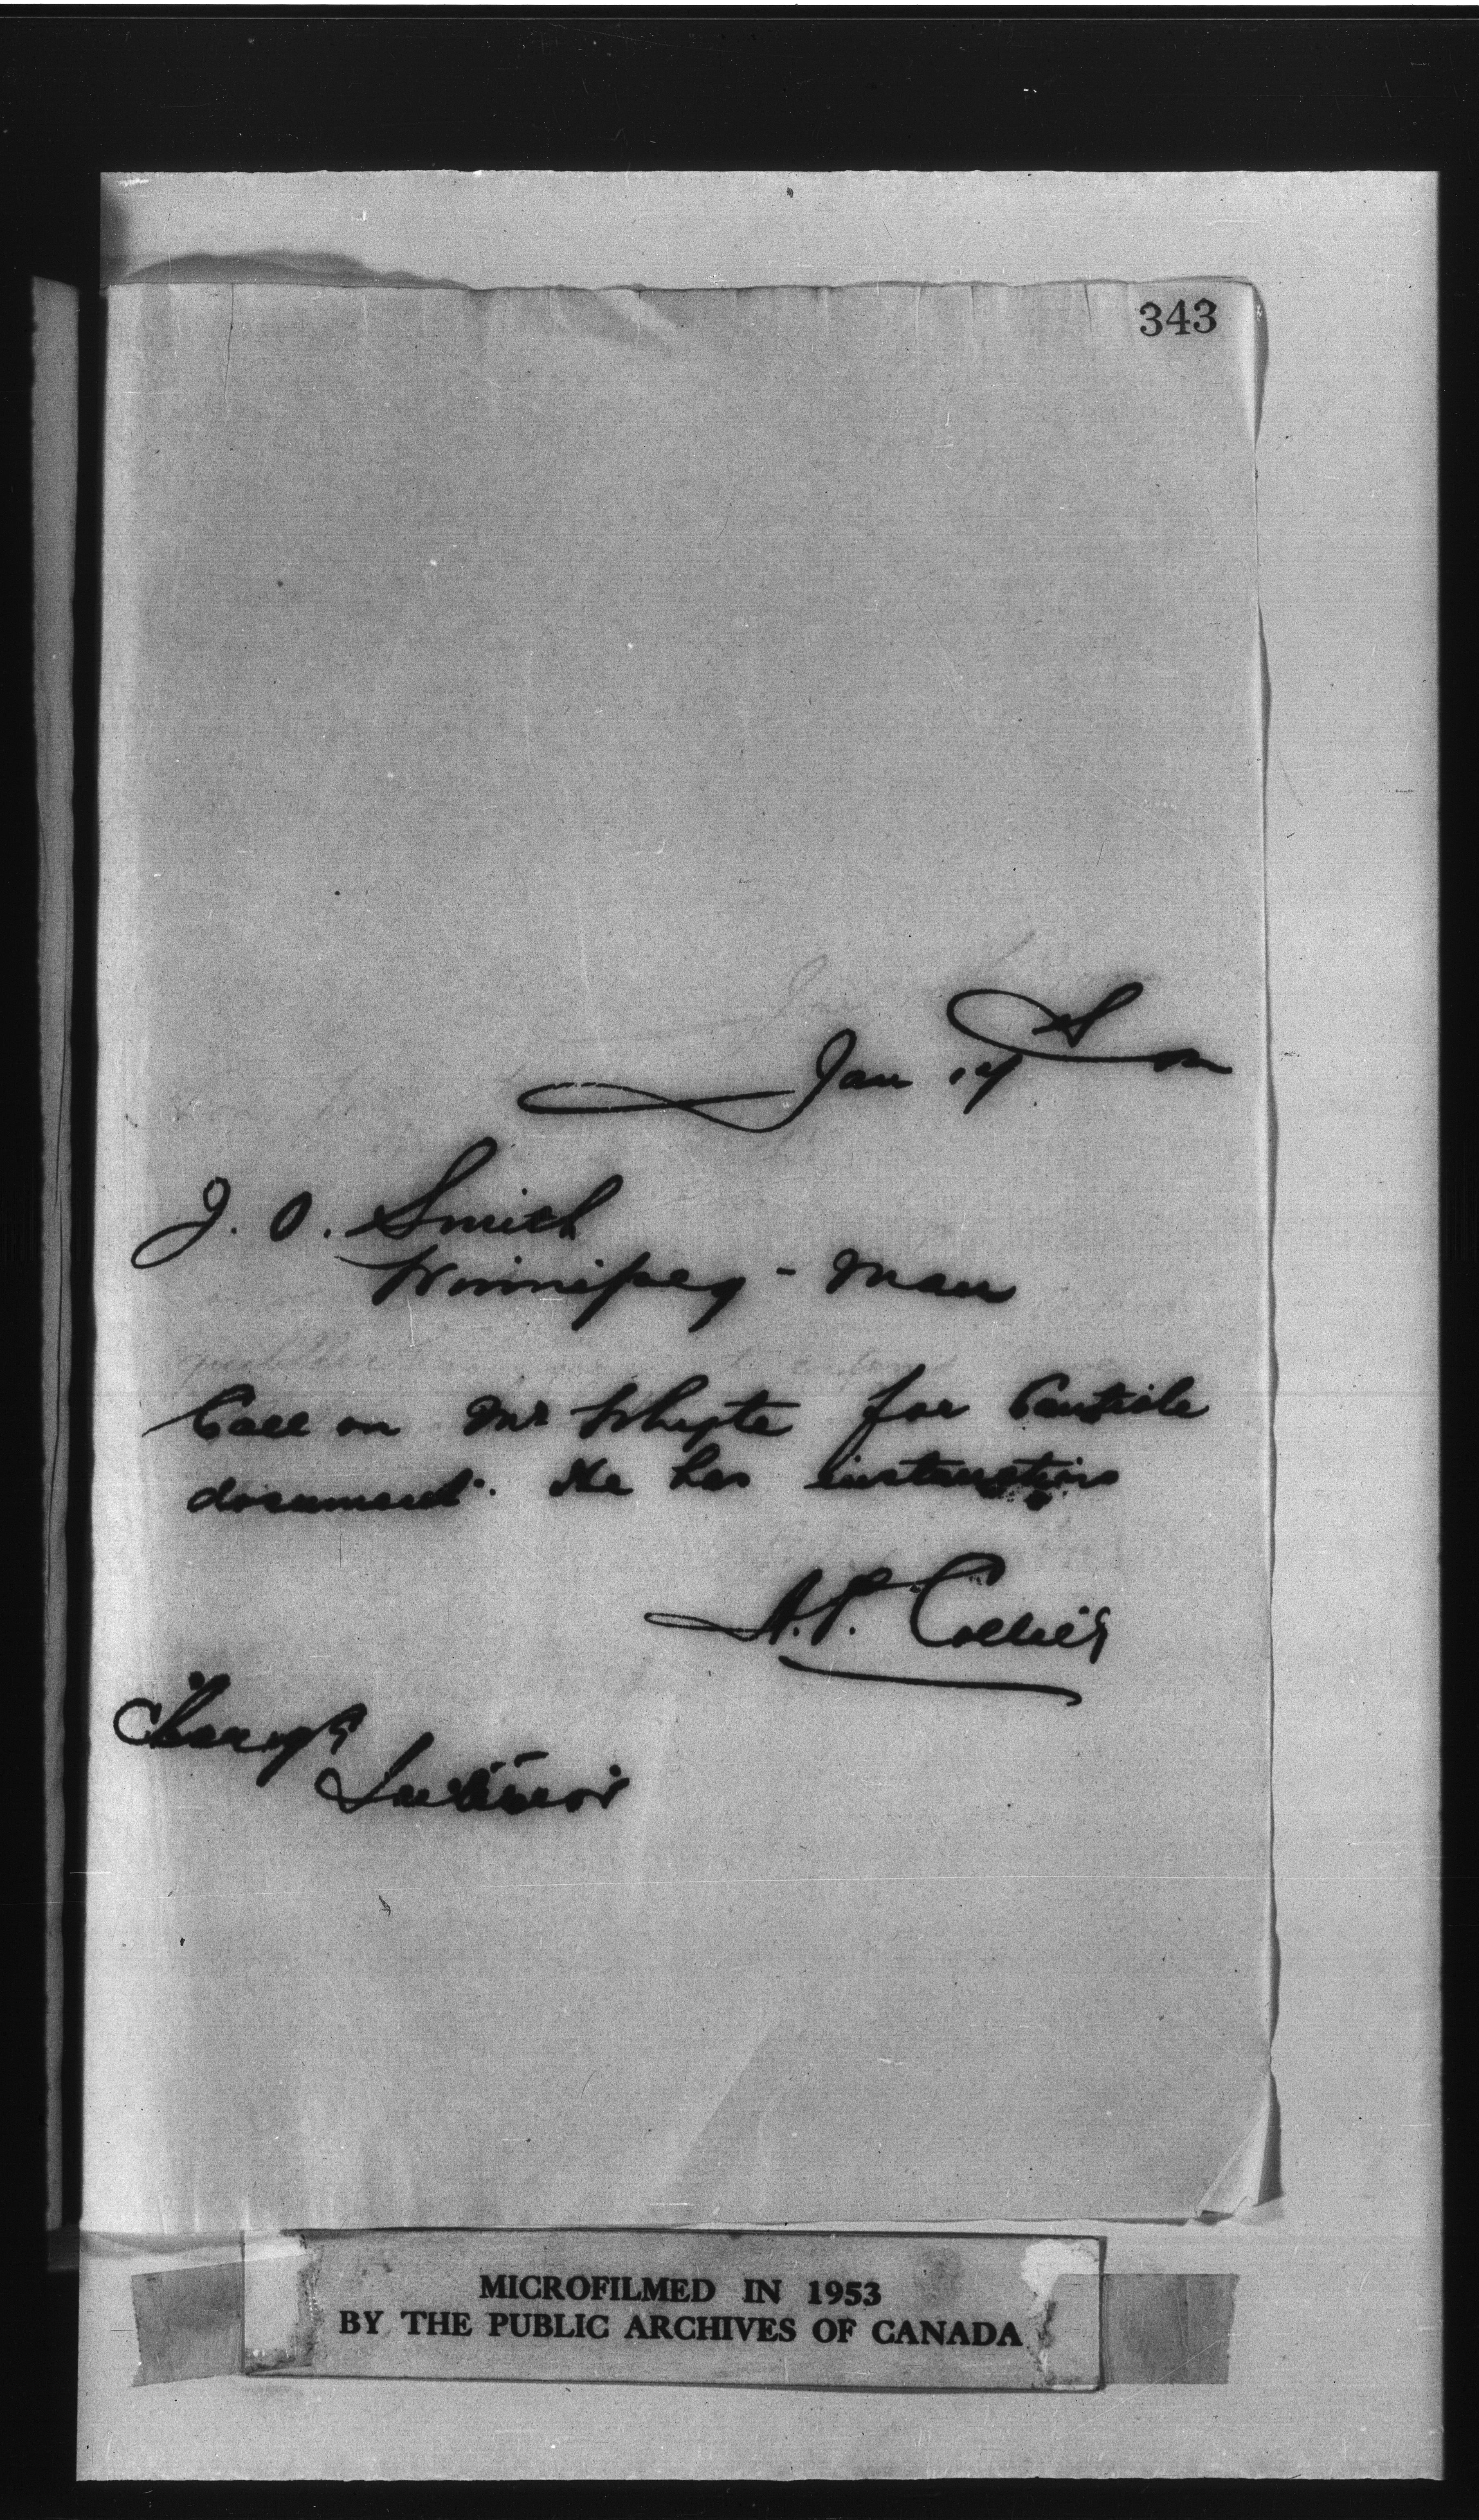 343
Jan 14
J. O. Smith
Winnipeg - Man
Call on Mr Whyte for
document. He has instructions
A.P. Collier
Charge
Interior
MICROFILMED IN 1953
BY THE PUBLIC ARCHIVES OF CANADA